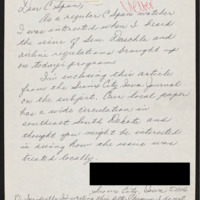 Dear C Span,
As a regular C Span watcher
I was interested when I heard
the issue of Sen. Daschle and
airline regulations brought up
on today's programs
I'm enclosing this article
from the Sioux City Journal
on the subject. Our local paper
has a wide circulation in
southeast South Dakota and
thought you might be interested
in seeing how the issue was
treated locally.
Sioux City, Iowa